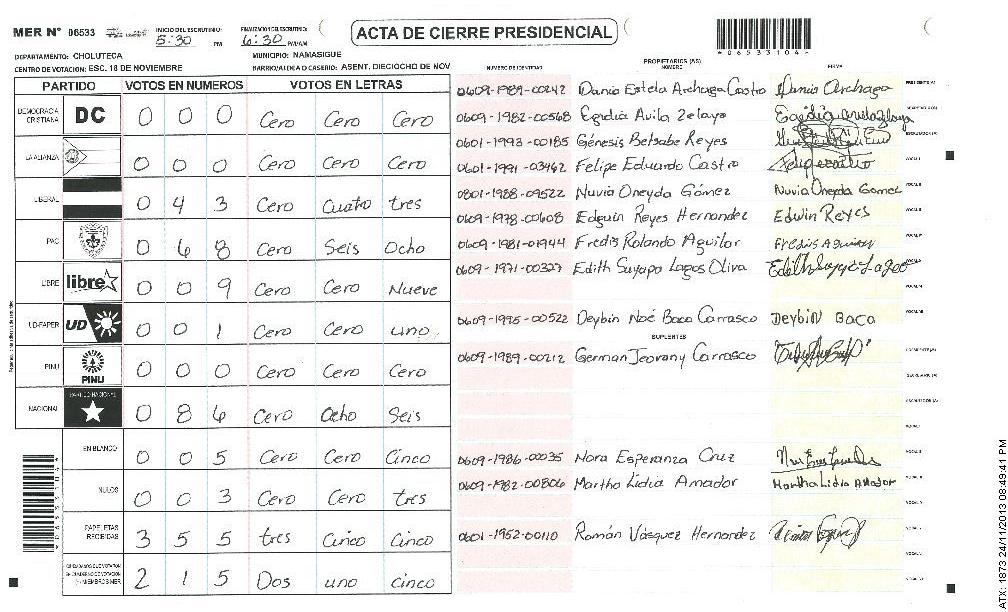 MER Nº 06533 INICIO DEL ESCRUTINIO: 5:30 PM FINALIZACION DEL ESCRUTINIO: 6:30 PM/AM
ACTA DE CIERRE PRESIDENCIAL
*06533104*
DEPARTAMENTO: CHOLUTECA MUNICIPIO: NAMASIGUE
CENTRO DE VOTACION: ESC. 18 DE NOVIEMBRE BARRIO/ALDEA O CASERIO: ASENT. DIECIOCHO DE NOV
PARTIDO VOTOS EN NUMEROS VOTOS EN LETRAS
DEMOCRACIA CRISTIANA DC 0 0 0 Cero Cero Cero
LA ALIANZA 0 0 0 Cero Cero Cero
LIBERAL 0 4 3 Cero Cuatro tres
PAC 0 6 8 Cero Seis Ocho
LIBRE libre 0 0 9 Cero Cero Nueve
UD-FAPER UD 0 0 1 Cero Cero uno
PINU PINU 0 0 0 Cero Cero Cero
NACIONAL PARTIDO NACIONAL 0 8 6 Cero Ocho Seis
EN BLANCO 0 0 5 Cero Cero Cinco
NULOS 0 0 3 Cero Cero tres
PAPELETAS RECIBIDAS 3 5 5 tres Cinco Cinco
2 1 5 Dos uno cinco
NUMERO DE IDENTIDAD PROPIETARIOS (AS) NOMBRE FIRMA
0609-1989-00242 Dania Estela Archaga Castro Dania Archaga
0609-1982-00568 Egridia Avila Zelaya
0601-1993-00185 Génesis Betsabe Reyes
0601-1991-03462 Felipe Eduardo Castro
0801-1988-09522 Nuvia Oneyda Gómez Nuvia Oneyda Gomez
0609-1978-00608 Edguin Reyes Hernandez Edwin Reyes
0609-1981-01944 Fredis Rolando Aguilar Fredis Aguilar
0609-1971-00327 Edith Suyapa Lagos Oliva
0609-1995-00522 Deybin Noé Baca Carrasco Deybin Baca
SUPLENTES
0609-1989-00212 German Jeovany Carrasco
0609-1986-00035 Nora Esperanza Cruz
0609-1982-00806 Martha Lidia Amador Martha Lidia Amador
0601-1952-00110 Román Vásquez Hernández
ATX: 1873 24/11/2013 08:49:41 PM